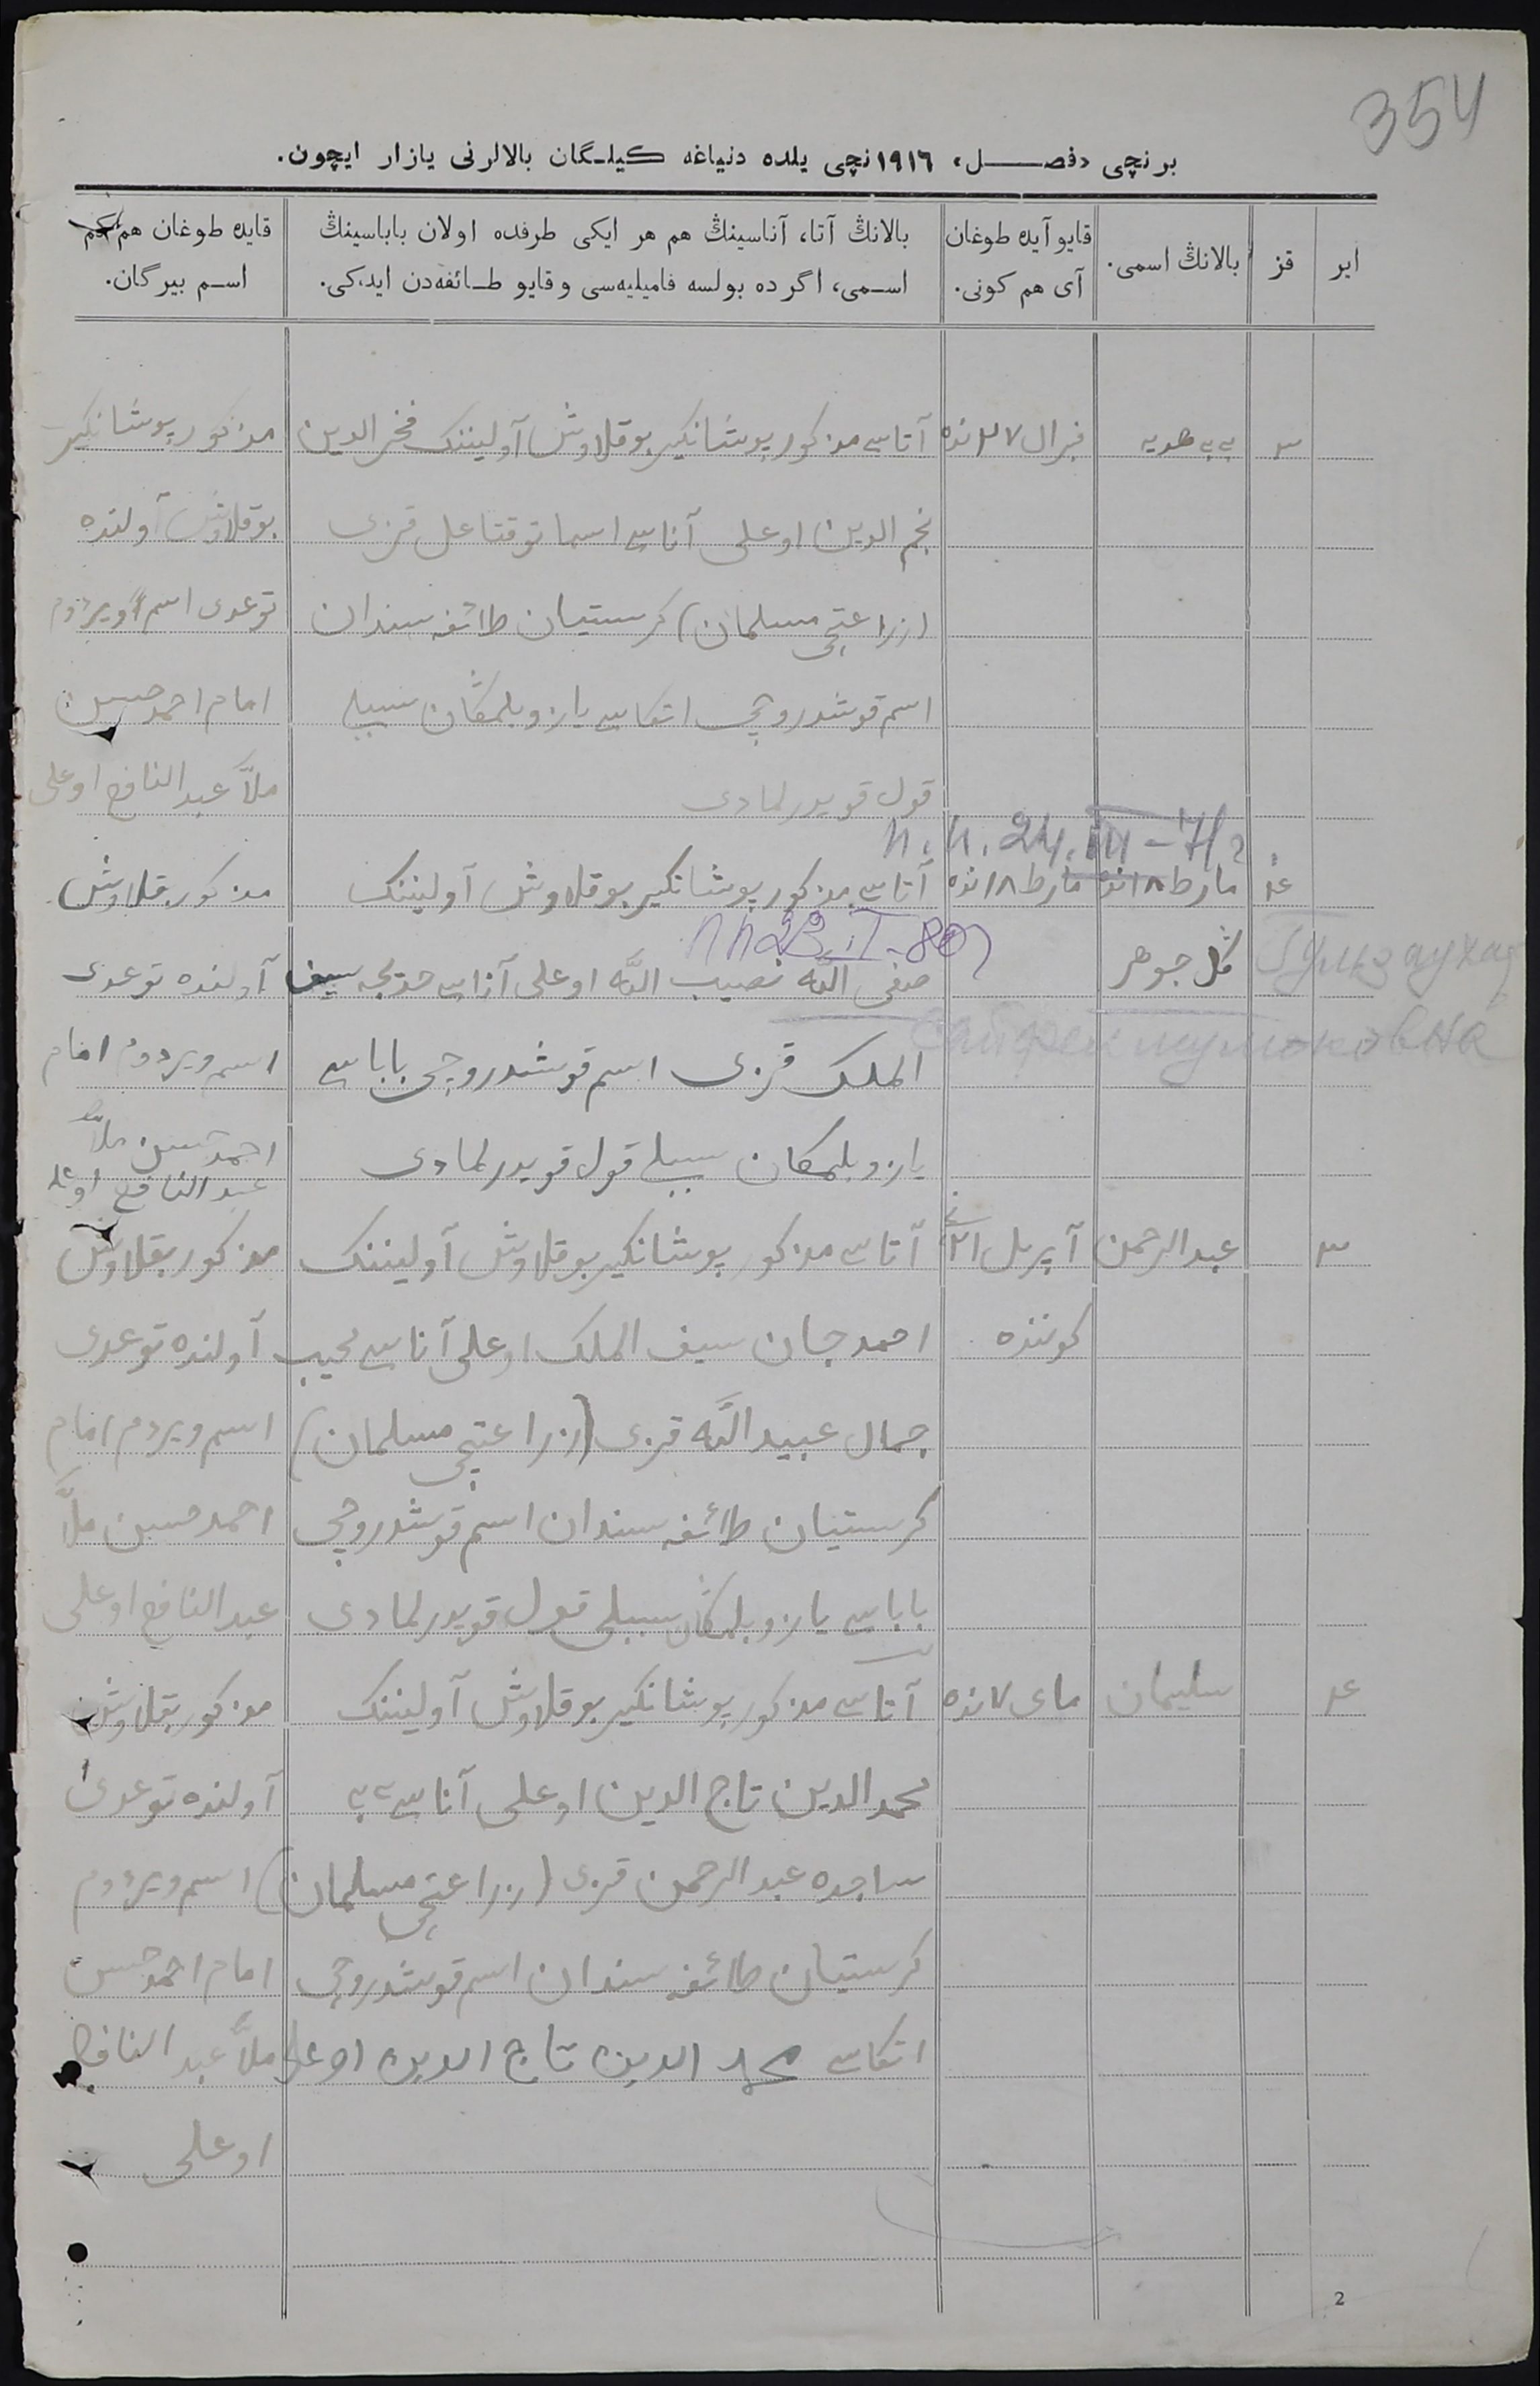 354
برنچی «فصل» ١٩١٦نچی یلده دنیاغه کیلگان بالالرنی یازار ایچون.
ایر
قز
بالانڭ اسمی.
قایو آیده طوغان
آی هم کونی.
بالانڭ آتا، آناسینڭ هم هر ایکی طرفده اولان باباسینڭ
اسمی، اگر ده بولسه فامیلیه‌سی و قایو طائفه‌دن ایدکی.
قایده طوغان هم کم
اسم بیرگان.
٣
بی بی هدیه
فبرال ٢٧ نده
آتاسی مذکور پوشانکیر بوقلاوش آولیننک فخر الدین
مذکور پوشانکیر
نجم الدین اوغلی آناسی اسما توقتاعل قزی
بوقلاوش آولنده
(زراعتچی مسلمان) کرستیان طائفه سندان
توغدی اسم ویردم
اسم قوشدروچی اتکاسی یازو بلمکان سببلی
امام احمد حسین
قول قویدرلمادی
ملا عبد النافع اوغلی
п. п. 24. III - 71 г
٤
مارط ١٨ نده
مارط ١٨ نده
آتاسی مذکور پوشانکیر بوقلاوش آولیننک
مذکور بقلاوش
пп 23. II - 80 г
گل جوهر
صفی الله نصیب الله اوغلی آناسی خدیجه سیف
آولنده توغدی
الملک قزی اسم قوشدروچی باباسی
اسم ویردم امام
یازو بلمکان سببلی قول قویدرلمادی
احمد حسین ملا
عبد النافع اوغلی
٣
عبد الرحمن
آپریل ٢١نچی
آتاسی مذکور پوشانکیر بوقلاوش آولیننک
مذکور بقلاوش
کوننده
احمد جان سیف الملک اوغلی آناسی محیب
آولنده توغدی
جمال عبید الله قزی (زراعتچی مسلمان)
اسم ویردم امام
کرستیان طائفه سندان اسم قوشدروچی
احمد حسین ملا
باباسی یازو بلمکان سببلی قول قویدرلمادی
عبد النافع اوغلی
٤
سلیمان
مای ٧ نده
آتاسی مذکور پوشانکیر بوقلاوش آولیننک
مذکور بقلاوش
محمد الدین تاج الدین اوغلی آناسی بی بی
آولنده توغدی
ساجده عبد الرحمن قزی (زراعتچی مسلمان)
اسم ویردم
کرستیان طائفه سندان اسم قوشدروچی
امام احمد حسین
اتکاسی محمد الدین تاج الدین اوغلی
ملا عبد النافع
اوغلی
2